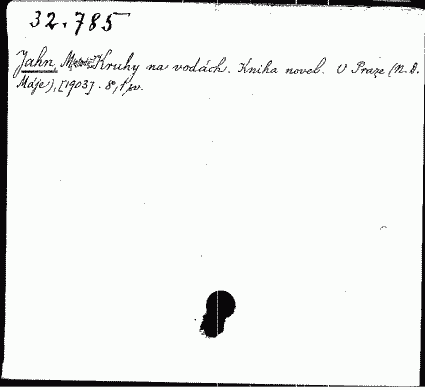 32.785
Jahn Kruhy na vodách. Kniha novel. V Praze (N. D.
Máje), [1903]. 8°,